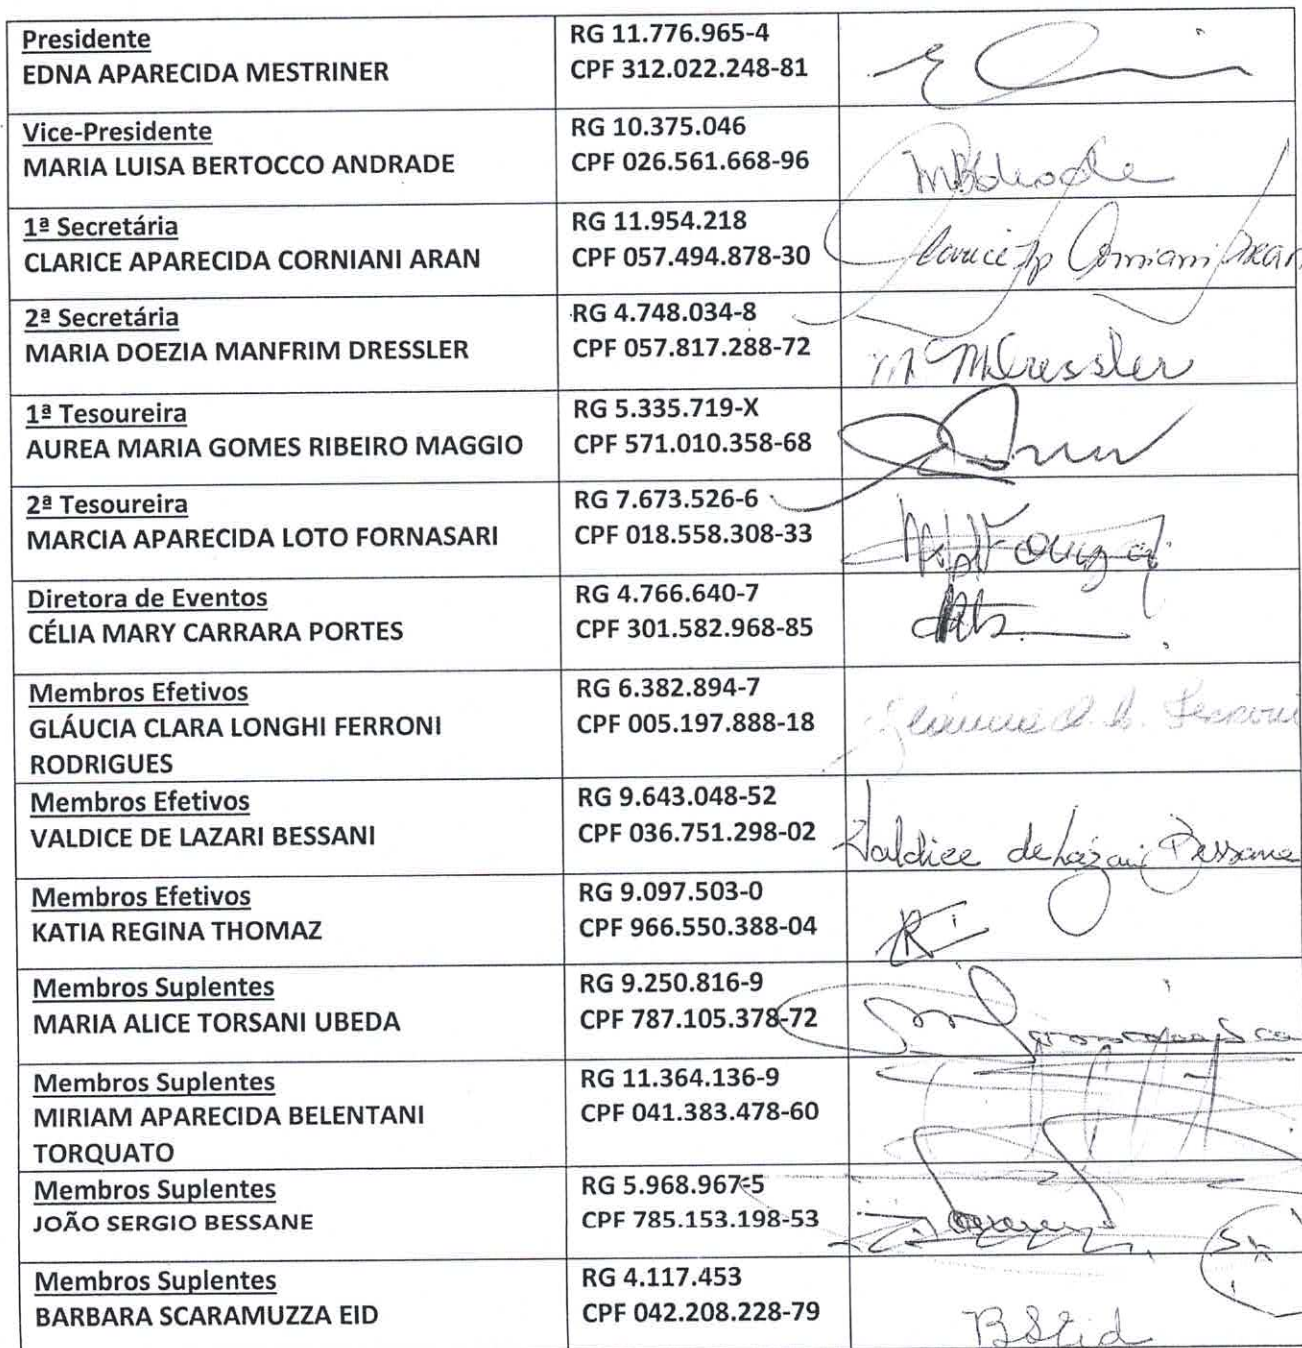 Presidente
EDNA APARECIDA MESTRINER
RG 11.776.965-4
CPF 312.022.248-81
Vice-Presidente
MARIA LUISA BERTOCCO ANDRADE
RG 10.375.046
CPF 026.561.668-96
1ª Secretária
CLARICE APARECIDA CORNIANI ARAN
RG 11.954.218
CPF 057.494.878-30
Clarice Ap Corniani Aran
2ª Secretária
MARIA DOEZIA MANFRIM DRESSLER
RG 4.748.034-8
CPF 057.817.288-72
M MDressler
1ª Tesoureira
AUREA MARIA GOMES RIBEIRO MAGGIO
RG 5.335.719-X
CPF 571.010.358-68
2ª Tesoureira
MARCIA APARECIDA LOTO FORNASARI
RG 7.673.526-6
CPF 018.558.308-33
Diretora de Eventos
CÉLIA MARY CARRARA PORTES
RG 4.766.640-7
CPF 301.582.968-85
Membros Efetivos
GLÁUCIA CLARA LONGHI FERRONI
RODRIGUES
RG 6.382.894-7
CPF 005.197.888-18
Membros Efetivos
VALDICE DE LAZARI BESSANI
RG 9.643.048-52
CPF 036.751.298-02
Valdice de Lazari Bessane
Membros Efetivos
KATIA REGINA THOMAZ
RG 9.097.503-0
CPF 966.550.388-04
Membros Suplentes
MARIA ALICE TORSANI UBEDA
RG 9.250.816-9
CPF 787.105.378-72
Membros Suplentes
MIRIAM APARECIDA BELENTANI
TORQUATO
RG 11.364.136-9
CPF 041.383.478-60
Membros Suplentes
JOÃO SERGIO BESSANE
RG 5.968.967-5
CPF 785.153.198-53
Membros Suplentes
BARBARA SCARAMUZZA EID
RG 4.117.453
CPF 042.208.228-79
BSEid